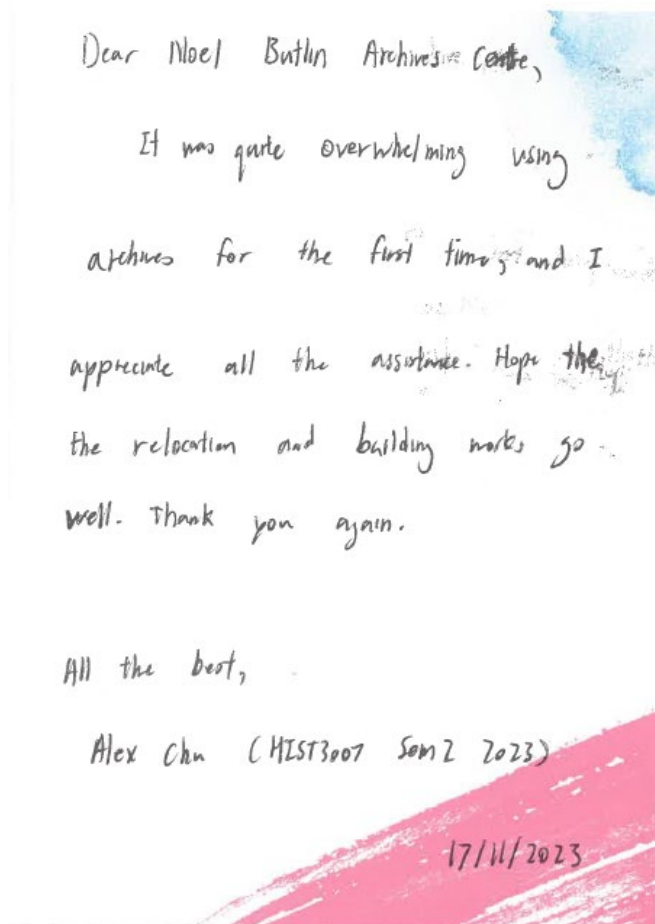 Dear Noel Butlin Archives Centre,
It was quite overwhelming using
archives for the first time, and I
appreciate all the assistance. Hope the
the relocation and building works go
well. Thank you again.
All the best,
Alex Chu (HIST3007 Sem 2 2023)
17/11/2023